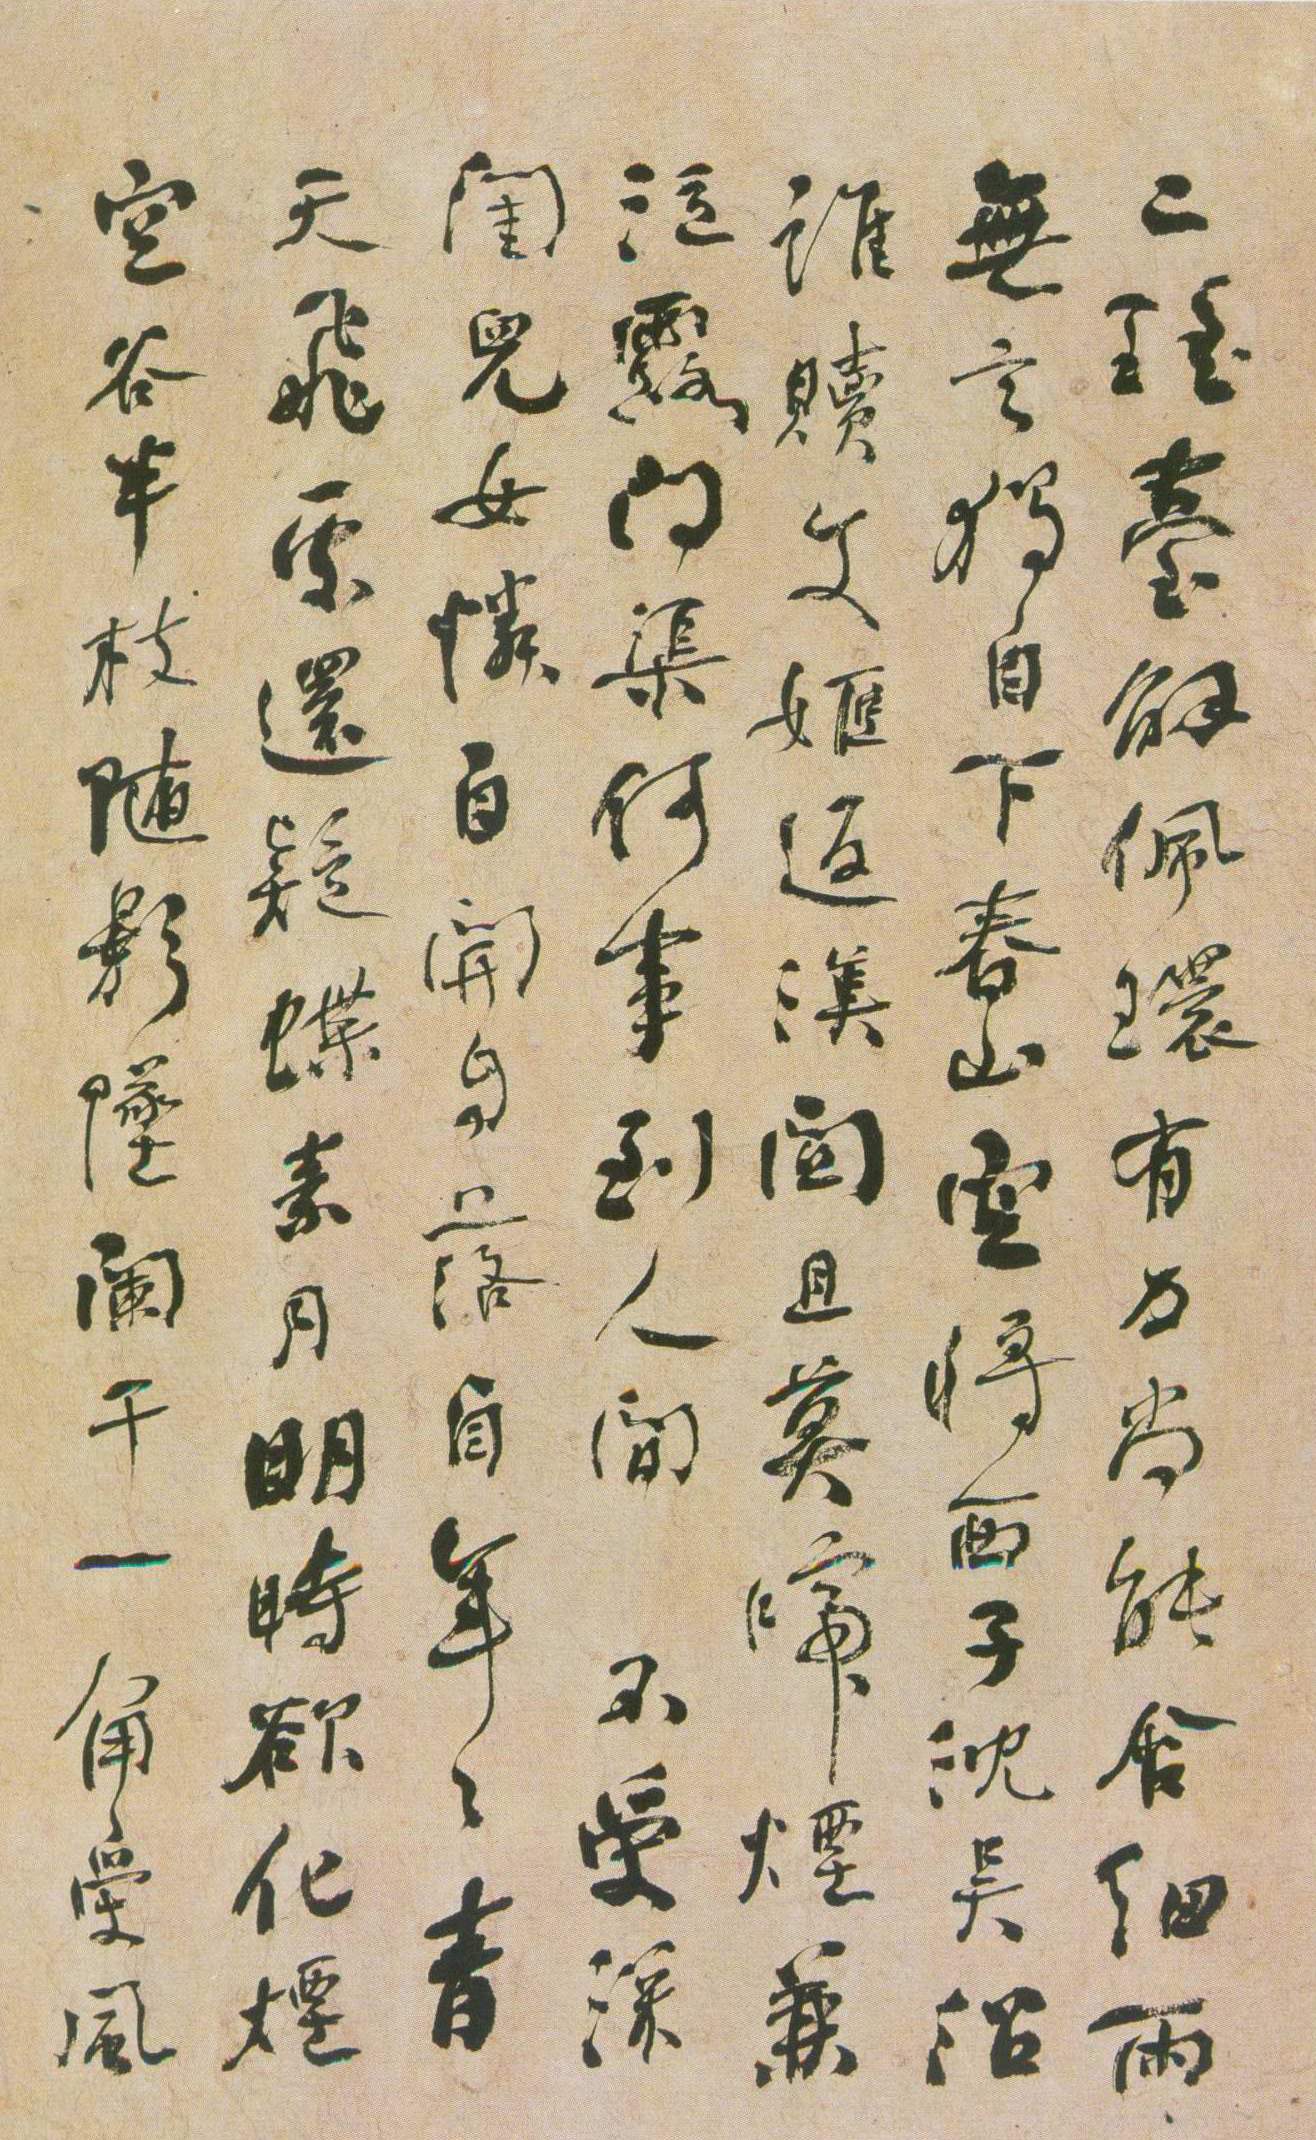 瑤臺解佩環有力尚能含細雨
無言獨自下春山空將西子沈吳沼
誰贖文姬返漢關且莫啼煙兼
泣露問渠何事到人間　不受深
閨兒女憐自開自落自年〻青
天飛處還疑蝶素月明時欲化煙
空谷半枝隨影墜闌干一角受風